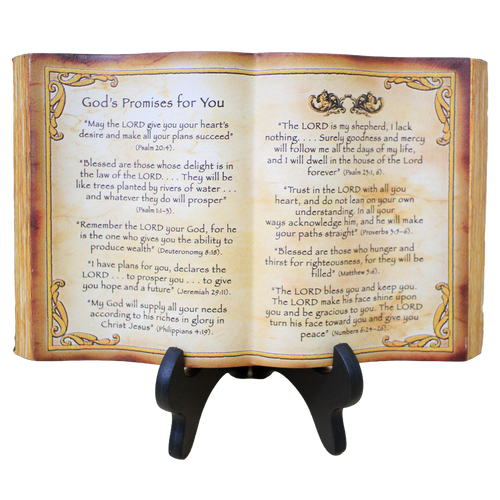 God's Promises for You
"May the LORD give you your heart's
desire and make all your plans succeed"
(Psalm 20:4).
"Blessed are those whose delight is in
the law of the LORD. . . . They will be
like trees planted by rivers of water . . .
and whatever they do will prosper"
(Psalm 1:1-3).
"Remember the LORD your God, for he
is the one who gives you the ability to
produce wealth" (Deuteronomy 8:18).
"I have plans for you, declares the
LORD . . . to prosper you . . . to give
you hope and a future" (Jeremiah 29:11).
"My God will supply all your needs
according to his riches in glory in
Christ Jesus" (Philippians 4:19).
"The LORD is my shepherd, I lack
nothing. . . . Surely goodness and mercy
will follow me all the days of my life,
and I will dwell in the house of the Lord
forever" (Psalm 23:1, 6).
"Trust in the LORD with all you
heart, and do not lean on your own
understanding. In all your
ways acknowledge him, and he will make
your paths straight" (Proverbs 3:5-6).
"Blessed are those who hunger and
thirst for righteousness, for they will be
filled" (Matthew 5:6).
"The LORD bless you and keep you.
The LORD make his face shine upon
you and be gracious to you. The LORD
turn his face toward you and give you
peace" (Numbers 6:24-26).